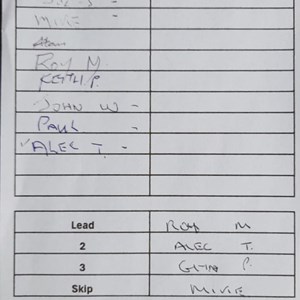 MIKE
ROY M.
KEITH P.
JOHN W -
PAUL -
ALEC T. -
Lead ROY M
2 ALEC T.
3 P.
Skip MIKE